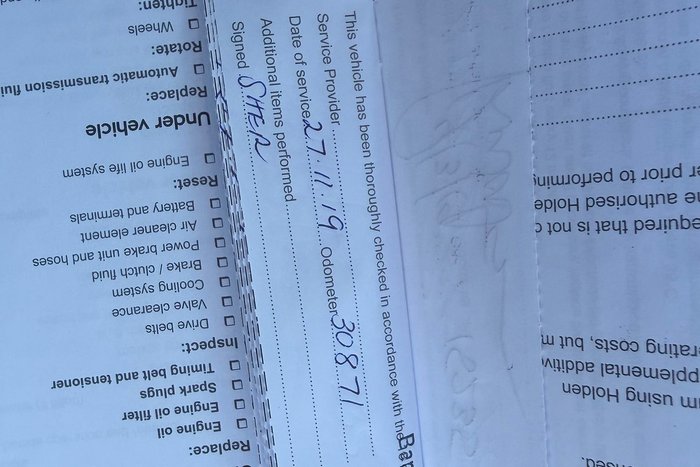 This vehicle has been thoroughly checked in accordance with the
Service Provider
Date of service 27.11.19 Odometer 30871
Additional items performed
Signed SHER
Replace:
Engine oil
Engine oil filter
Spark plugs
Timing belt and tensioner
Inspect:
Drive belts
Valve clearance
Cooling system
Brake / clutch fluid
Power brake unit and hoses
Air cleaner element
Battery and terminals
Reset:
Engine oil life system
Under vehicle
Replace:
Automatic transmission flui
Rotate:
Wheels
Tighten:
using Holden
pplemental additiv
rating costs, but m
equired that is not c
e authorised Holde
r prior to performing